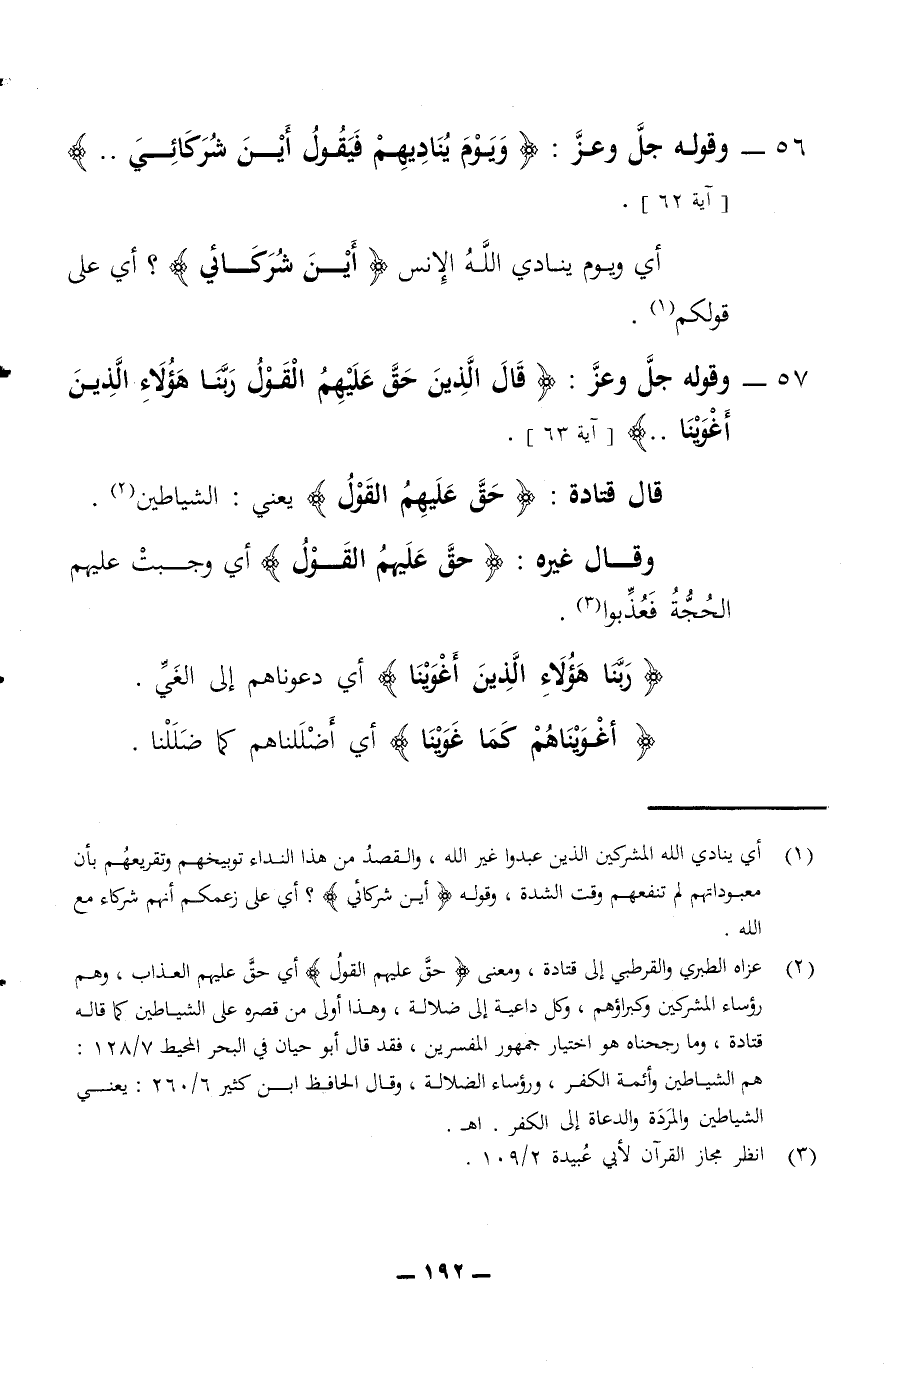 ٥٦ ــ وقوله جلَّ وعزَّ : ﴿ وَيَوْمَ يُنَادِيهِمْ فَيَقُولُ أَيْنَ شُرَكَائِيَ .. ﴾
[ آية ٦٢ ] .
أي ويوم ينادي اللَّهُ الإنس ﴿ أَيْنَ شُرَكَائي ﴾ ؟ أي على
قولكم(١) .
٥٧ ــ وقوله جلَّ وعزَّ : ﴿ قَالَ الَّذِينَ حَقَّ عَلَيْهِمُ الْقَوْلُ رَبَّنَا هَؤُلَاءِ الَّذِينَ
أَغْوَيْنَا ..﴾ [ آية ٦٣ ] .
قال قتادة : ﴿ حَقَّ عَلَيهِمُ القَوْلُ ﴾ يعني : الشياطين(٢) .
وقال غيره : ﴿ حقَّ عَلَيهمُ القَوْلُ ﴾ أي وجبتْ عليهم
الحُجَّةُ فَعُذِّبوا(٣) .
﴿ رَبَّنَا هَؤُلَاءِ الَّذِينَ أَغْوَيْنَا ﴾ أي دعوناهم إلى الغَيِّ .
﴿ أغْوَيْنَاهُمْ كَمَا غَوَيْنَا ﴾ أي أَضْلَلناهم كما ضَلَلْنا .
(١) أي ينادي الله المشركين الذين عبدوا غير الله ، والقصدُ من هذا النداء توبيخهم وتقريعهُم بأن
معبوداتهم لم تنفعهم وقت الشدة ، وقوله ﴿ أين شركائي ﴾ ؟ أي على زعمكم أنهم شركاء مع
الله .
(٢) عزاه الطبري والقرطبي إلى قتادة ، ومعنى ﴿ حقَّ عليهم القولُ ﴾ أي حقَّ عليهم العذاب ، وهم
رؤساء المشركين وكبراؤهم ، وكل داعية إلى ضلالة ، وهذا أولى من قصره على الشياطين كما قاله
قتادة ، وما رجحناه هو اختيار جمهور المفسرين ، فقد قال أبو حيان في البحر المحيط ١٢٨/٧ :
هم الشياطين وأئمة الكفر ، ورؤساء الضلالة ، وقال الحافظ ابن كثير ٢٦٠/٦ : يعني
الشياطين والمَرَدَة والدعاة إلى الكفر . اهـ .
(٣) انظر مجاز القرآن لأبي عُبيدة ١٠٩/٢ .
ــ ١٩٢ ــ